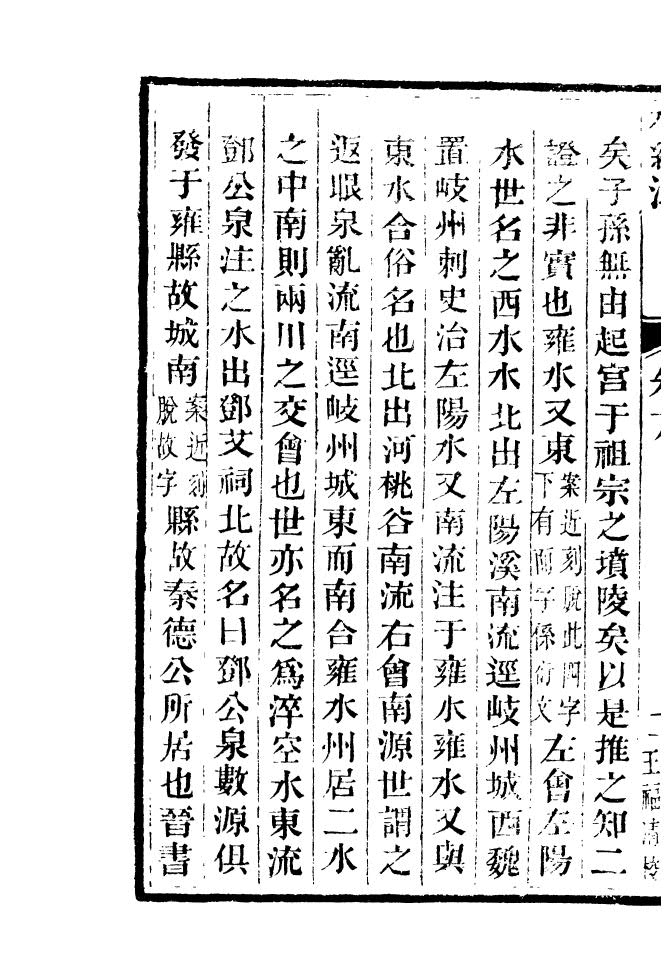 矣子孫無由起宫于祖宗之墳陵矣以是推之知二
證之非實也雍水又東案近刻脫此四字下有前字係衍文左會左陽
水世名之西水水北出左陽溪南流逕岐州城西魏
置岐州刺史治左陽水又南流注于雍水雍水又與
東水合俗名也北出河桃谷南流右會南源世謂之
返眼泉亂流南逕岐州城東而南合雍水州居二水
之中南則兩川之交會也世亦名之爲淬空水東流
鄧公泉注之水出鄧艾祠北故名曰鄧公泉數源俱
發于雍縣故城南案近刻脫故字縣故秦德公所居也晉書